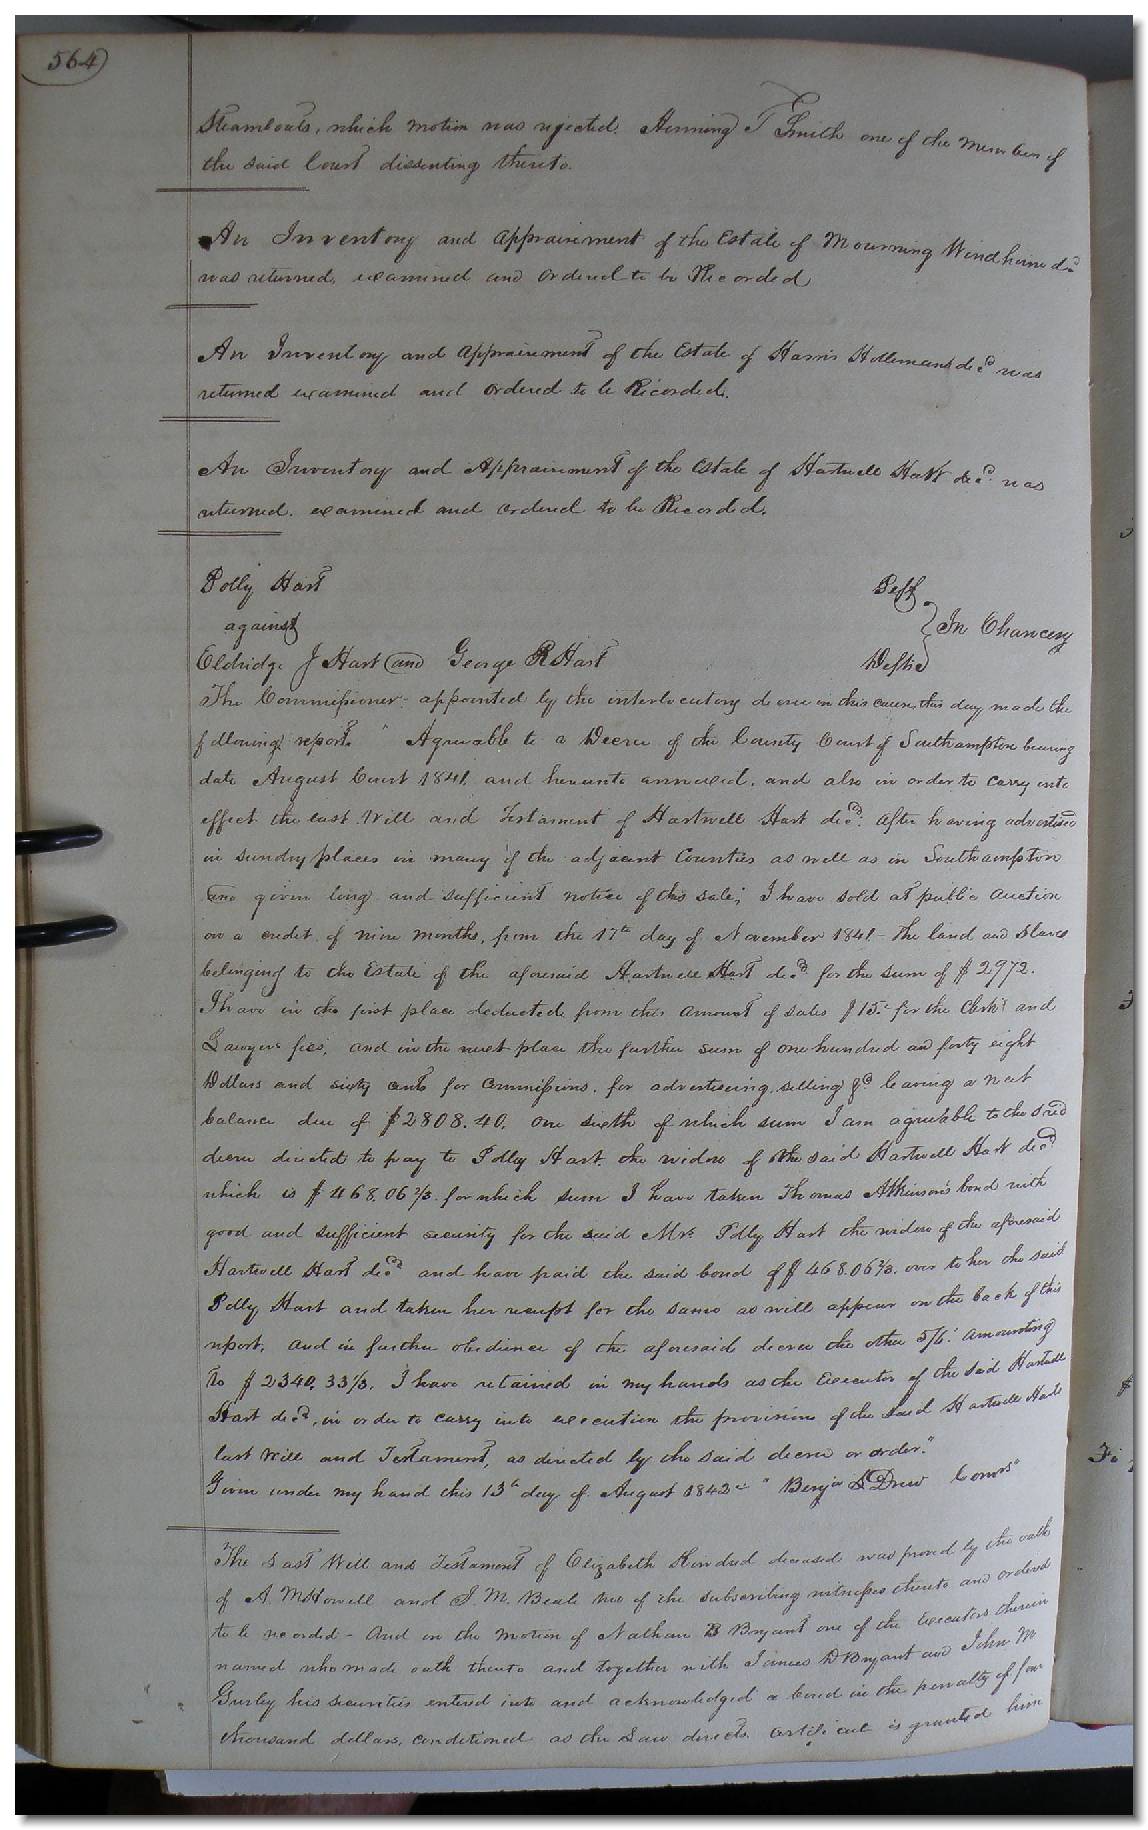 564
Steamboats, which motion was rejected. Henning T Smith one of the members of
the said Court dissenting thereto.
An Inventory and Appraisement of the Estate of Mourning Windham decd
was returned, examined and ordered to be Recorded
An Inventory and Appraisement of the Estate of Harris Hollemans decd was
returned examined and ordered to be Recorded.
An Inventory and Appraisement of the Estate of Hartwell Hart decd was
returned. examined and ordered to be Recorded.
Polly Hart Peff
against } In Chancery
Eldridge J Hart and George R Hart Defts
The Commissioner appointed by the interlocutory decree in this cause this day made the
following report. " Agreeable to a Decree of the County Court of Southampton bearing
date August Court 1841, and hereunto annexed, and also in order to carry into
effect the last Will and Testament of Hartwell Hart decd. After having advertised
in sundry places in many of the adjacent Counties as well as in Southampton
and given long and sufficient notice of this sale; I have sold at public auction
on a credit of nine months, from the 17th day of November 1841 - The land and Slaves
belonging to the Estate of the aforesaid Hartwell Hart decd for the sum of $ 2972.
I have in the first place deducted from this amount of sales $15.- for the Clerks and
Lawyers fees, and in the next place the further sum of one hundred and forty eight
Dollars and sixty cents for commissions. for advertiseing, selling &c leaving a neat
balance due of $2808.40. One sixth of which sum I am agreeable to the sd
decree directed to pay to Polly Hart. the widow of the said Hartwell Hart decd
which is $ 468.06 2/3. for which sum I have taken Thomas Atkinson's bond with
good and sufficient security for the said Mrs Polly Hart the widow of the aforesaid
Hartwell Hart decd and have paid the said bond of $ 468.06 2/3. over to her the said
Polly Hart and taken her receipt for the same as will appear on the back of this
report. And in further obedience of the aforesaid decree the other 5/6: amounting
to $ 2340.33 1/3. I have retained in my hands as the Executor of the said Hartwell
Hart decd, in order to carry into execution the provisions of the said Hartwell Harts
last Will and Testament, as directed by the said decree or order."
Given under my hand this 13th day of August 1842 " Benja Drew Comrs"
The Last Will and Testament of Elizabeth Kindred deceased was proved by the oath
of A. M Howell and J. M. Beale two of the subscribing witnesses thereto and ordered
to be recorded - And on the motion of Nathan B Bryant one of the Executors therein
named who made oath thereto and together with James D Bryant and John M
Gurley his securities entered into and acknowledged a bond in the penalty of four
thousand dollars, conditioned as the Law directs. Certificate is granted him